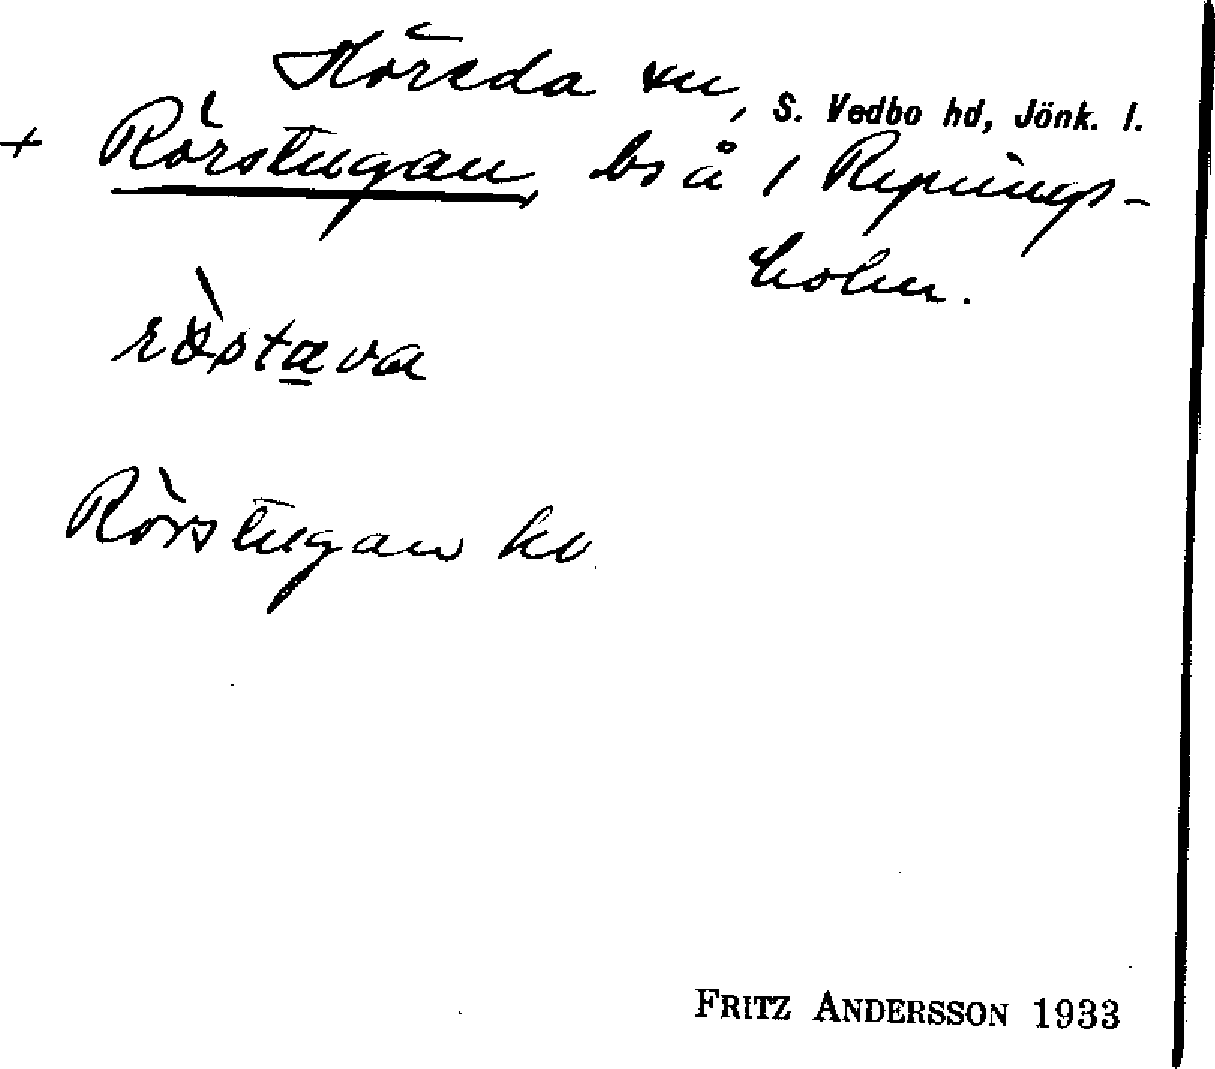 Höreda sn, S. Vedbo hd, Jönk. l.
+ Rörstugan, bs å 1 Repnings-
holm.
ròstava
Rörstugan kv
FRITZ ANDERSSON 1933